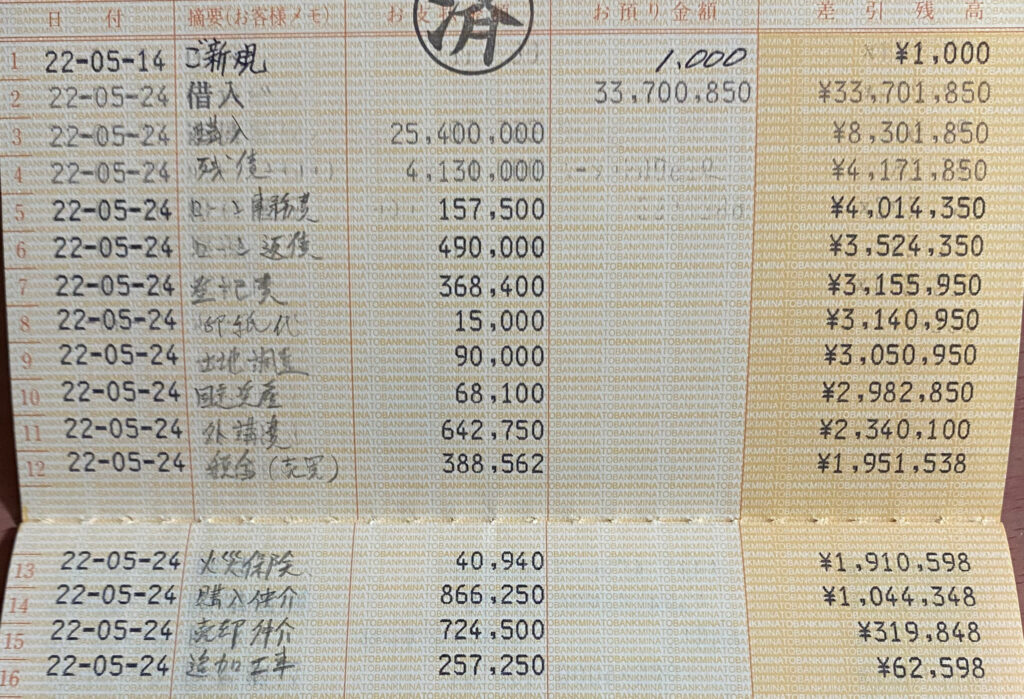 日 付 摘要(お客様メモ) お支 お預り金額 差引残高
済
1 22-05-14 ご新規 1,000 ¥1,000
2 22-05-24 借入 33,700,850 ¥33,701,850
3 22-05-24 購入 25,400,000 ¥8,301,850
4 22-05-24 残債 4,130,000 ¥4,171,850
5 22-05-24 事務費 157,500 ¥4,014,350
6 22-05-24 返債 490,000 ¥3,524,350
7 22-05-24 登記費 368,400 ¥3,155,950
8 22-05-24 印紙代 15,000 ¥3,140,950
9 22-05-24 土地調査 90,000 ¥3,050,950
10 22-05-24 固定資産 68,100 ¥2,982,850
11 22-05-24 外構費 642,750 ¥2,340,100
12 22-05-24 税金(売買) 388,562 ¥1,951,538
13 22-05-24 火災保険 40,940 ¥1,910,598
14 22-05-24 購入仲介 866,250 ¥1,044,348
15 22-05-24 売却仲介 724,500 ¥319,848
16 22-05-24 追加工事 257,250 ¥62,598